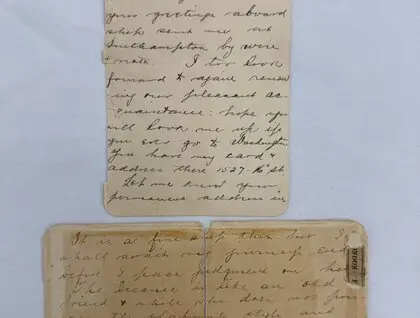 your greetings aboard
ship sent me at
Southampton by wire
& note. I too look
forward to again renew
ing our pleasant ac-
quaintance: hope you
will look me up if
you ever go to Washington
You have my card &
address there 1527-16" St.
Let me know your
permanent address in
It is a fine ship but I
shall await my journeys end
before I pass judgment on her
The Oceanic is like an old
friend & while she does not
the style and